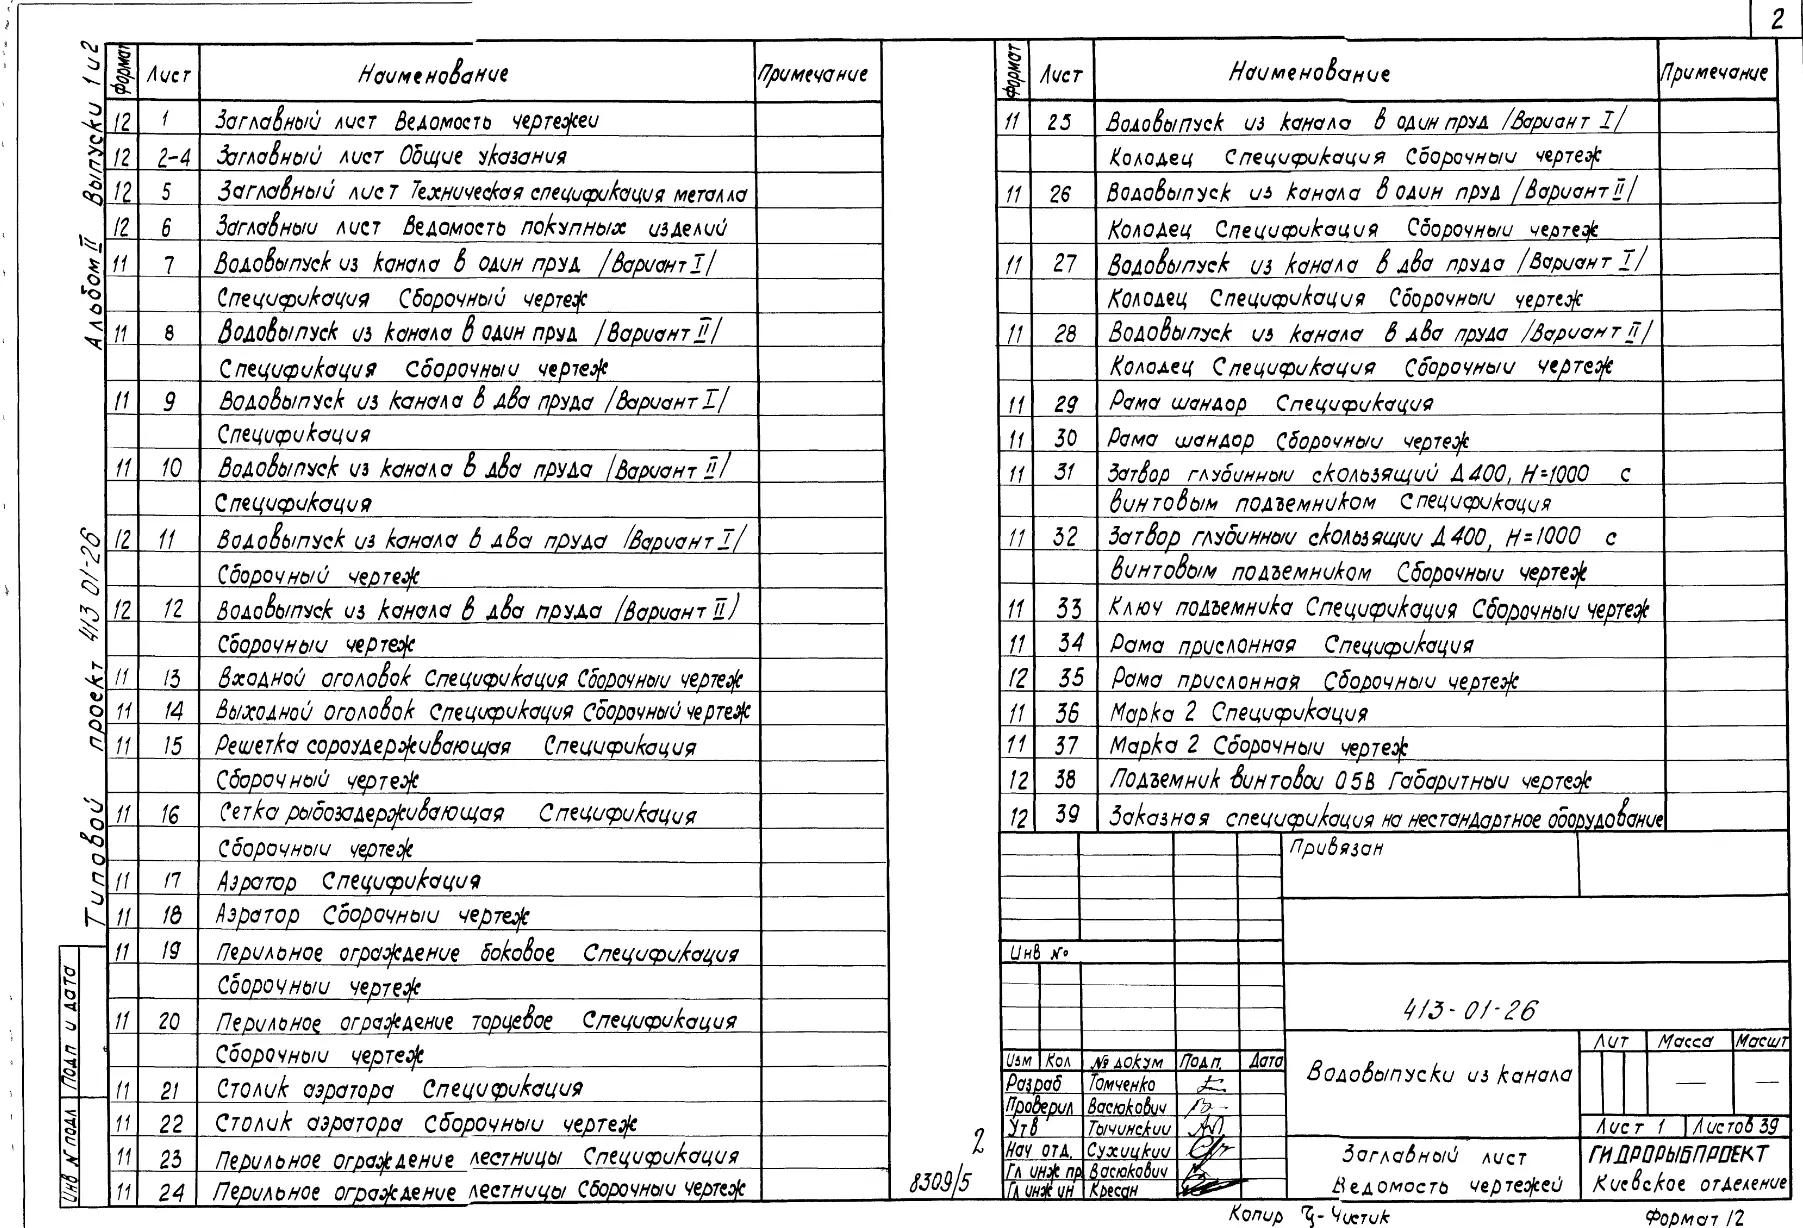 2
Типовой проект 413 01-26 Альбом II Выпуски 1 и 2
формат Лист Наименование Примечание
12 1 Заглавный лист Ведомость чертежей
12 2-4 Заглавный лист Общие указания
12 5 Заглавный лист Техническая спецификация металла
12 6 Заглавный лист Ведомость покупных изделий
11 7 Водовыпуск из канала в один пруд /Вариант I/
Спецификация Сборочный чертеж
11 8 Водовыпуск из канала в один пруд /Вариант II/
Спецификация Сборочный чертеж
11 9 Водовыпуск из канала в два пруда /Вариант I/
Спецификация
11 10 Водовыпуск из канала в два пруда /Вариант II/
Спецификация
12 11 Водовыпуск из канала в два пруда /Вариант I/
Сборочный чертеж
12 12 Водовыпуск из канала в два пруда /Вариант II/
Сборочный чертеж
11 13 Входной оголовок Спецификация Сборочный чертеж
11 14 Выходной оголовок Спецификация Сборочный чертеж
11 15 Решетка сороудерживающая Спецификация
Сборочный чертеж
11 16 Сетка рыбозадерживающая Спецификация
Сборочный чертеж
11 17 Аэратор Спецификация
11 18 Аэратор Сборочный чертеж
11 19 Перильное ограждение боковое Спецификация
Сборочный чертеж
11 20 Перильное ограждение торцевое Спецификация
Сборочный чертеж
11 21 Столик аэратора Спецификация
11 22 Столик аэратора Сборочный чертеж
11 23 Перильное ограждение лестницы Спецификация
11 24 Перильное ограждение лестницы Сборочный чертеж
Инв № подл Подп и дата
2
8309/5
формат Лист Наименование Примечание
11 25 Водовыпуск из канала в один пруд /Вариант I/
Колодец Спецификация Сборочный чертеж
11 26 Водовыпуск из канала в один пруд /Вариант II/
Колодец Спецификация Сборочный чертеж
11 27 Водовыпуск из канала в два пруда /Вариант I/
Колодец Спецификация Сборочный чертеж
11 28 Водовыпуск из канала в два пруда /Вариант II/
Колодец Спецификация Сборочный чертеж
11 29 Рама шандор Спецификация
11 30 Рама шандор Сборочный чертеж
11 31 Затвор глубинный скользящий Д 400, Н=1000 с
винтовым подъемником Спецификация
11 32 Затвор глубинный скользящий Д 400, Н=1000 с
винтовым подъемником Сборочный чертеж
11 33 Ключ подъемника Спецификация Сборочный чертеж
11 34 Рама прислонная Спецификация
12 35 Рама прислонная Сборочный чертеж
11 36 Марка 2 Спецификация
11 37 Марка 2 Сборочный чертеж
12 38 Подъемник винтовой 05В Габаритный чертеж
12 39 Заказная спецификация на нестандартное оборудование
Привязан
Инв №
413-01-26
Изм Кол № докум Подп. Дата
Разраб Томченко
Проверил Васюкович
Утв Тычинский
Нач отд. Сухицкий
Гл инж пр Васюкович
Гл инж ин Кресан
Водовыпуски из канала
Лит Масса Масшт
— —
Лист 1 Листов 39
Заглавный лист
Ведомость чертежей
ГИДРОРЫБПРОЕКТ
Киевское отделение
Копир Чистик Формат 12